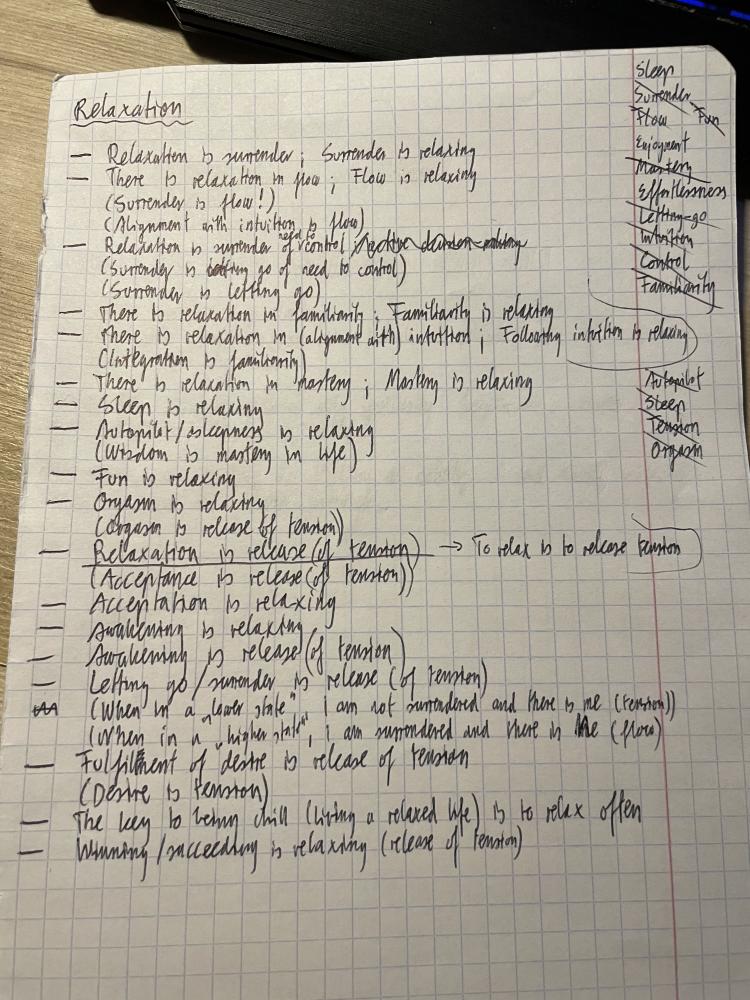 Relaxation
— Relaxation is surrender ; Surrender is relaxing
— There is relaxation in flow ; Flow is relaxing
(Surrender is flow!)
(Alignment with intuition is flow)
— Relaxation is surrender of need to control / Active decision-making
(Surrender is letting go of need to control)
(Surrender is letting go)
— There is relaxation in familiarity ; Familiarity is relaxing
— There is relaxation in (alignment with) intuition ; Following intuition is relaxing
(Integration is familiarity)
— There is relaxation in mastery ; Mastery is relaxing
— Sleep is relaxing
— Autopilot/asleepness is relaxing
(Wisdom is mastery in life)
— Fun is relaxing
— Orgasm is relaxing
(Orgasm is release (of tension))
— Relaxation is release (of tension) → To relax is to release tension
(Acceptance is release (of tension))
— Acceptation is relaxing
— Awakening is relaxing
— Awakening is release (of tension)
— Letting go/surrender is release (of tension)
(When in a „lower state", i am not surrendered and there is me (tension))
(When in a „higher state", i am surrendered and there is Me (flow)
— Fulfilment of desire is release of tension
(Desire is tension)
— The key to being chill (living a relaxed life) is to relax often
— Winning/succeeding is relaxing (release of tension)
Sleep
Surrender
Flow Fun
Enjoyment
Mastery
Effortlessness
Letting-go
Intuition
Control
Familiarity
Autopilot
Sleep
Tension
Orgasm